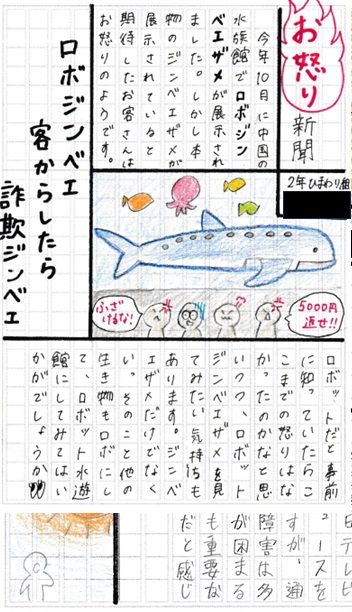 お怒り
新聞
2年ひまわり組
今年10月に中国の
水族館でロボジン
ベエザメが展示され
ました。しかし本
物のジンベエザメが
展示されていると
期待したお客さんは
お怒りのようです。
ロボジンベエ
客からしたら
詐欺ジンベエ
5000円
返せ!!
ふざ
けるな!
ロボットだと事前
に知っていたらこ
こまでの怒りはな
かったのかなと思
いつつ、ロボット
ジンベエザメを見
てみたい気持ちも
あります。ジンベ
エザメだけでなく
い。そのこと他の
生き物もロボにし
て、ロボット水遊
館にしてみてはい
かがでしょうか
ュースを
すが、通
障害は多
が困まる
も重要な
だと感じ